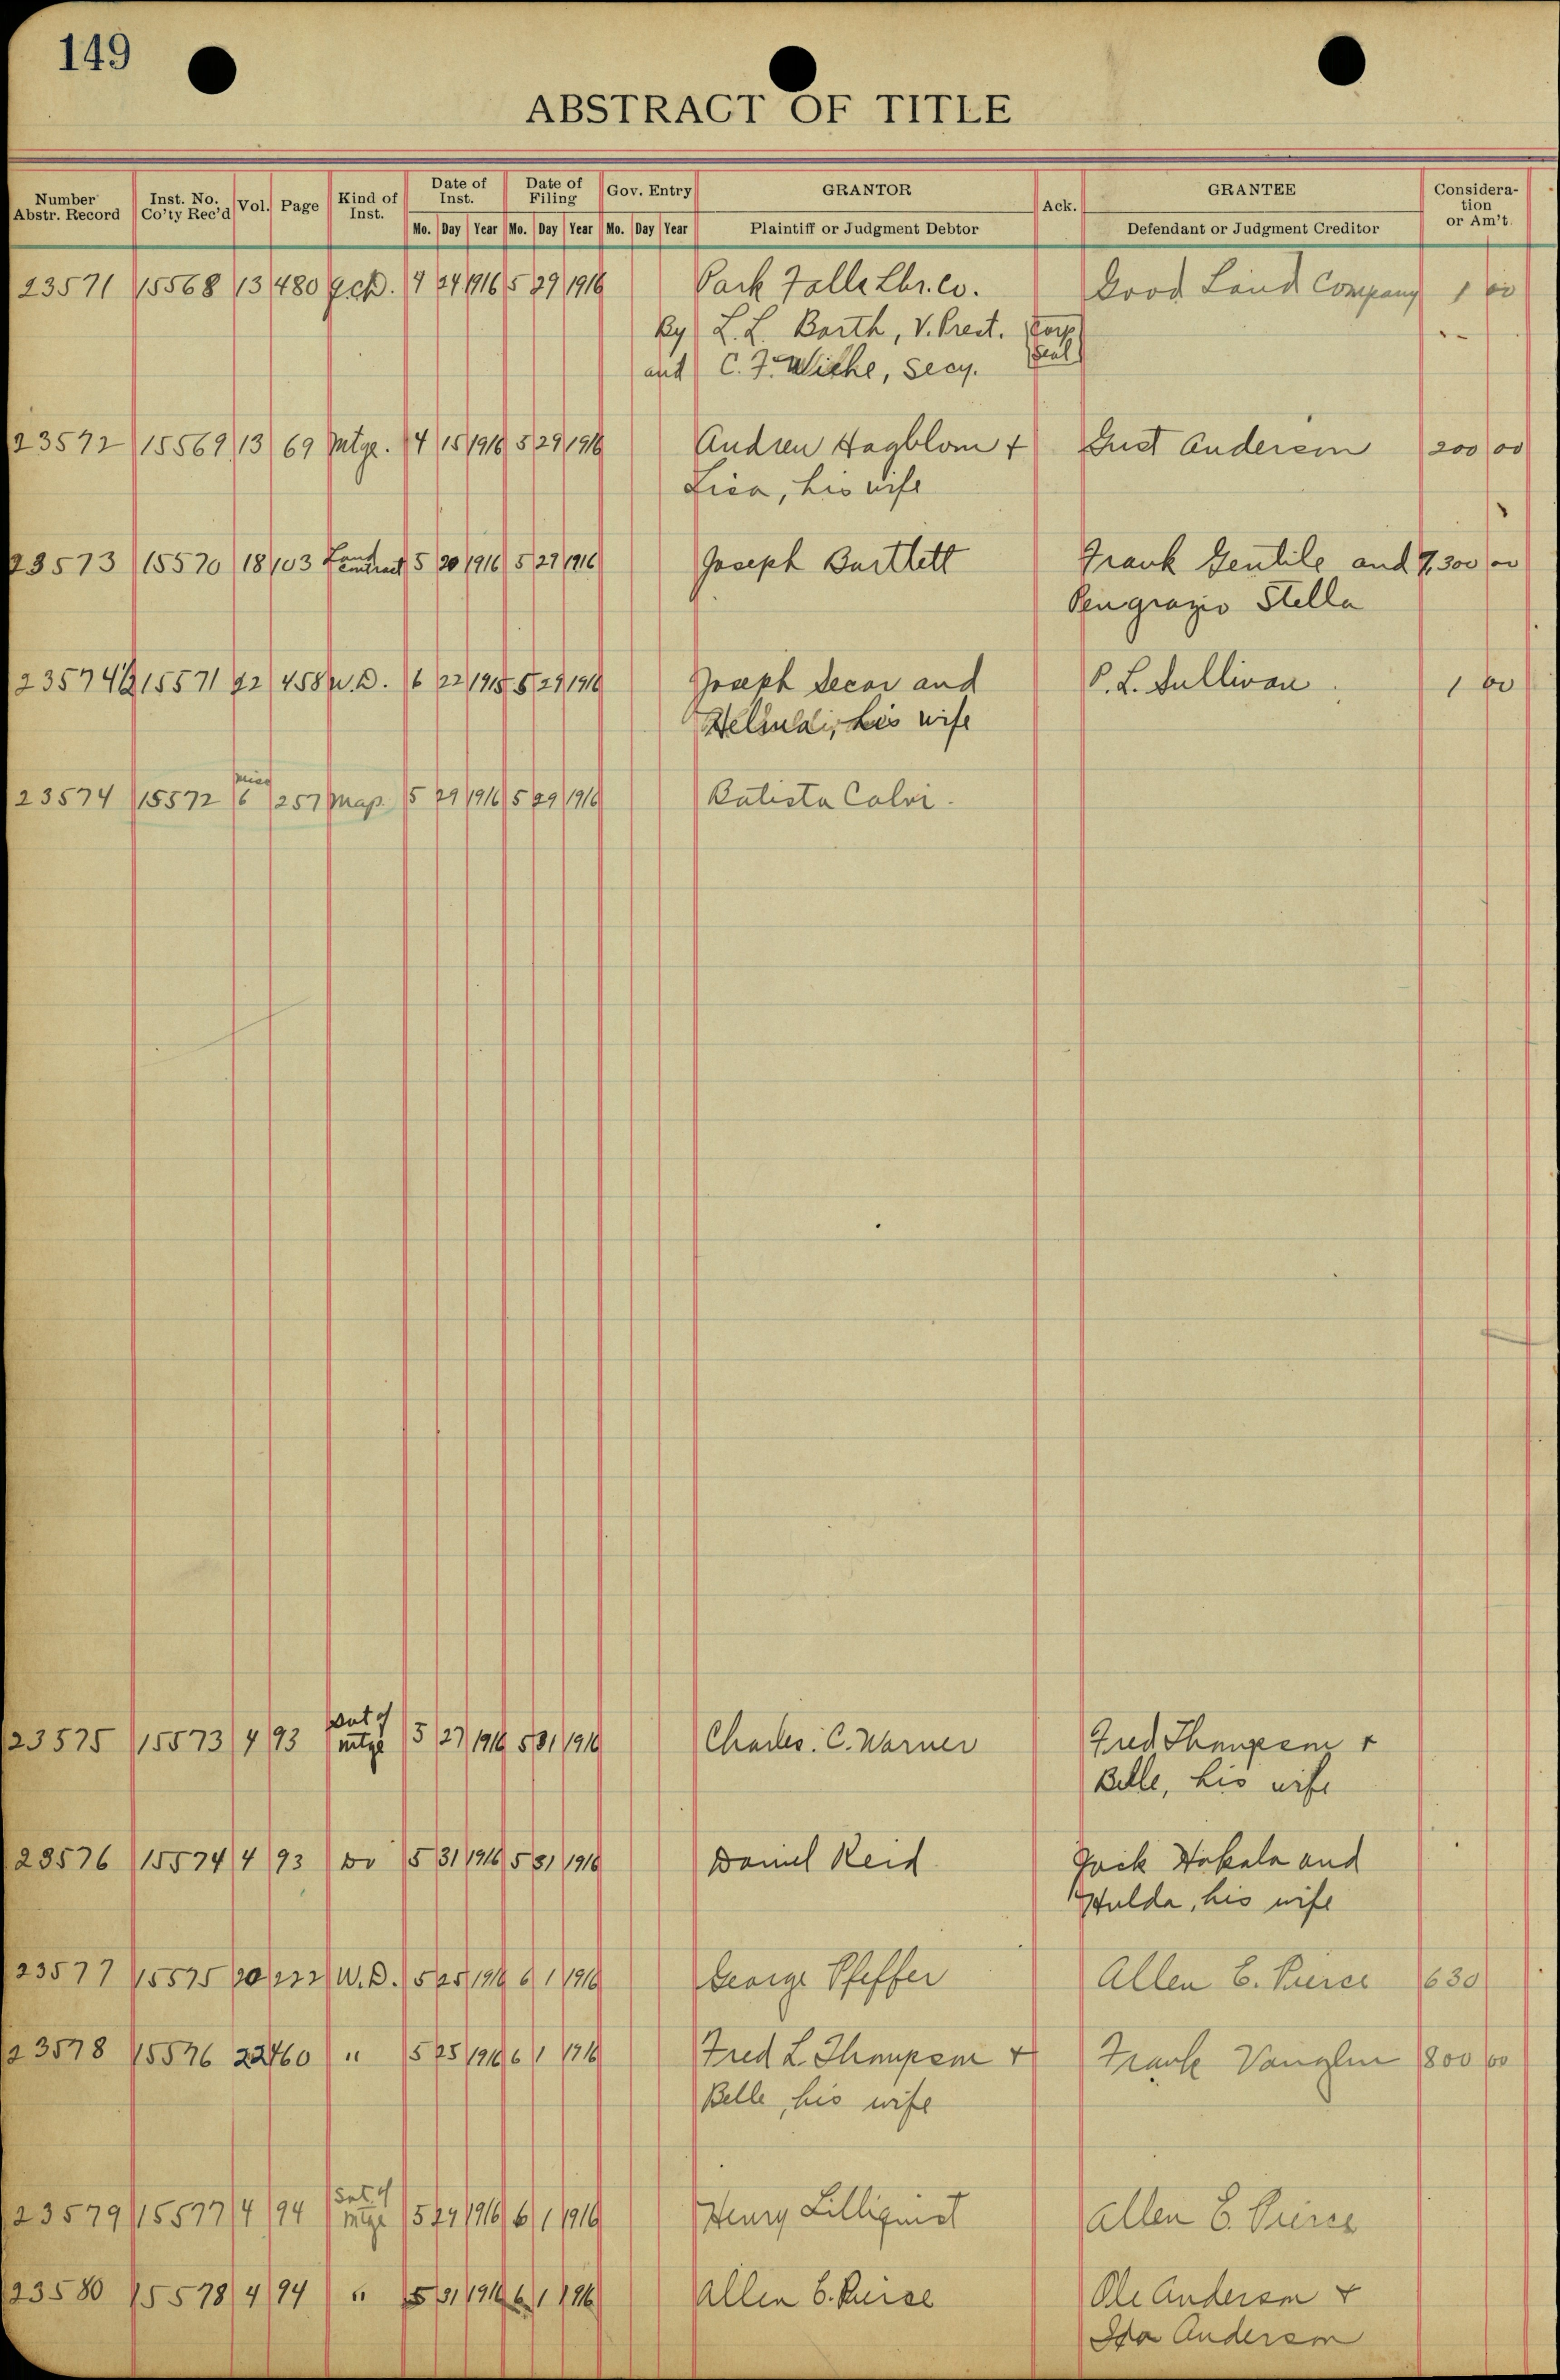 149
ABSTRACT OF TITLE
Number Abstr. Record Inst. No. Co'ty Rec'd Vol. Page Kind of Inst. Date of Inst. Date of Filing Gov. Entry GRANTOR Ack. GRANTEE Consideration or Am't.
Mo. Day Year Mo. Day Year Mo. Day Year Plaintiff or Judgment Debtor Defendant or Judgment Creditor
23571 15568 13 480 Q.C.D. 4 24 1916 5 29 1916 Park Falls Lbr. Co. Good Land Company 1 00
By L. L. Barth, V. Prest. Corp
and C. F. Wiehe, Secy. Seal
23572 15569 13 69 Mtge. 4 15 1916 5 29 1916 Andrew Hagblom + Gust Anderson 200 00
Lisa, his wife
23573 15570 18 103 Land Contract 5 20 1916 5 29 1916 Joseph Bartlett Frank Gentile and 7,300 00
Pengrazio Stella
23574½ 15571 22 458 W.D. 6 22 1915 5 29 1916 Joseph Secor and P. L. Sullivan 1 00
his wife
23574 15572 Misc 6 257 Map 5 29 1916 5 29 1916 Batista Calvi.
23575 15573 4 93 Sat of Mtge 5 27 1916 5 31 1916 Charles. C. Warner Fred Thompson +
Belle, his wife
23576 15574 4 93 Do 5 31 1916 5 31 1916 Daniel Reid Jack Hakala and
Hulda, his wife
23577 15575 20 222 W.D. 5 25 1916 6 1 1916 George Pfeffer Allen E. Pierce 630
23578 15576 22 460 " 5 25 1916 6 1 1916 Fred L Thompson + Frank Vanglin 800 00
Belle, his wife
23579 15577 4 94 Sat. of Mtge 5 29 1916 6 1 1916 Henry Lilliquist Allen E. Pierce
23580 15578 4 94 " 5 31 1916 6 1 1916 Allen E. Pierce Ole Anderson +
Ida Anderson